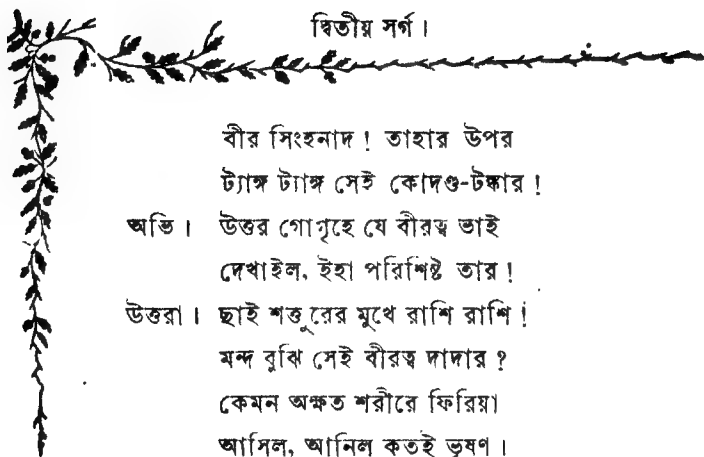 দ্বিতীয় সর্গ।
বীর সিংহনাদ! তাহার উপর
ট্যাঙ্গ ট্যাঙ্গ সেই কোদণ্ড-টঙ্কার!
অভি। উত্তর গোগৃহে যে বীরত্ব ভাই
দেখাইল, ইহা পরিশিষ্ট তার!
উত্তরা। ছাই শত্তুরের মুখে রাশি রাশি!
মন্দ বুঝি সেই বীরত্ব দাদার?
কেমন অক্ষত শরীরে ফিরিয়া
আসিল, আনিল কতই ভূষণ।